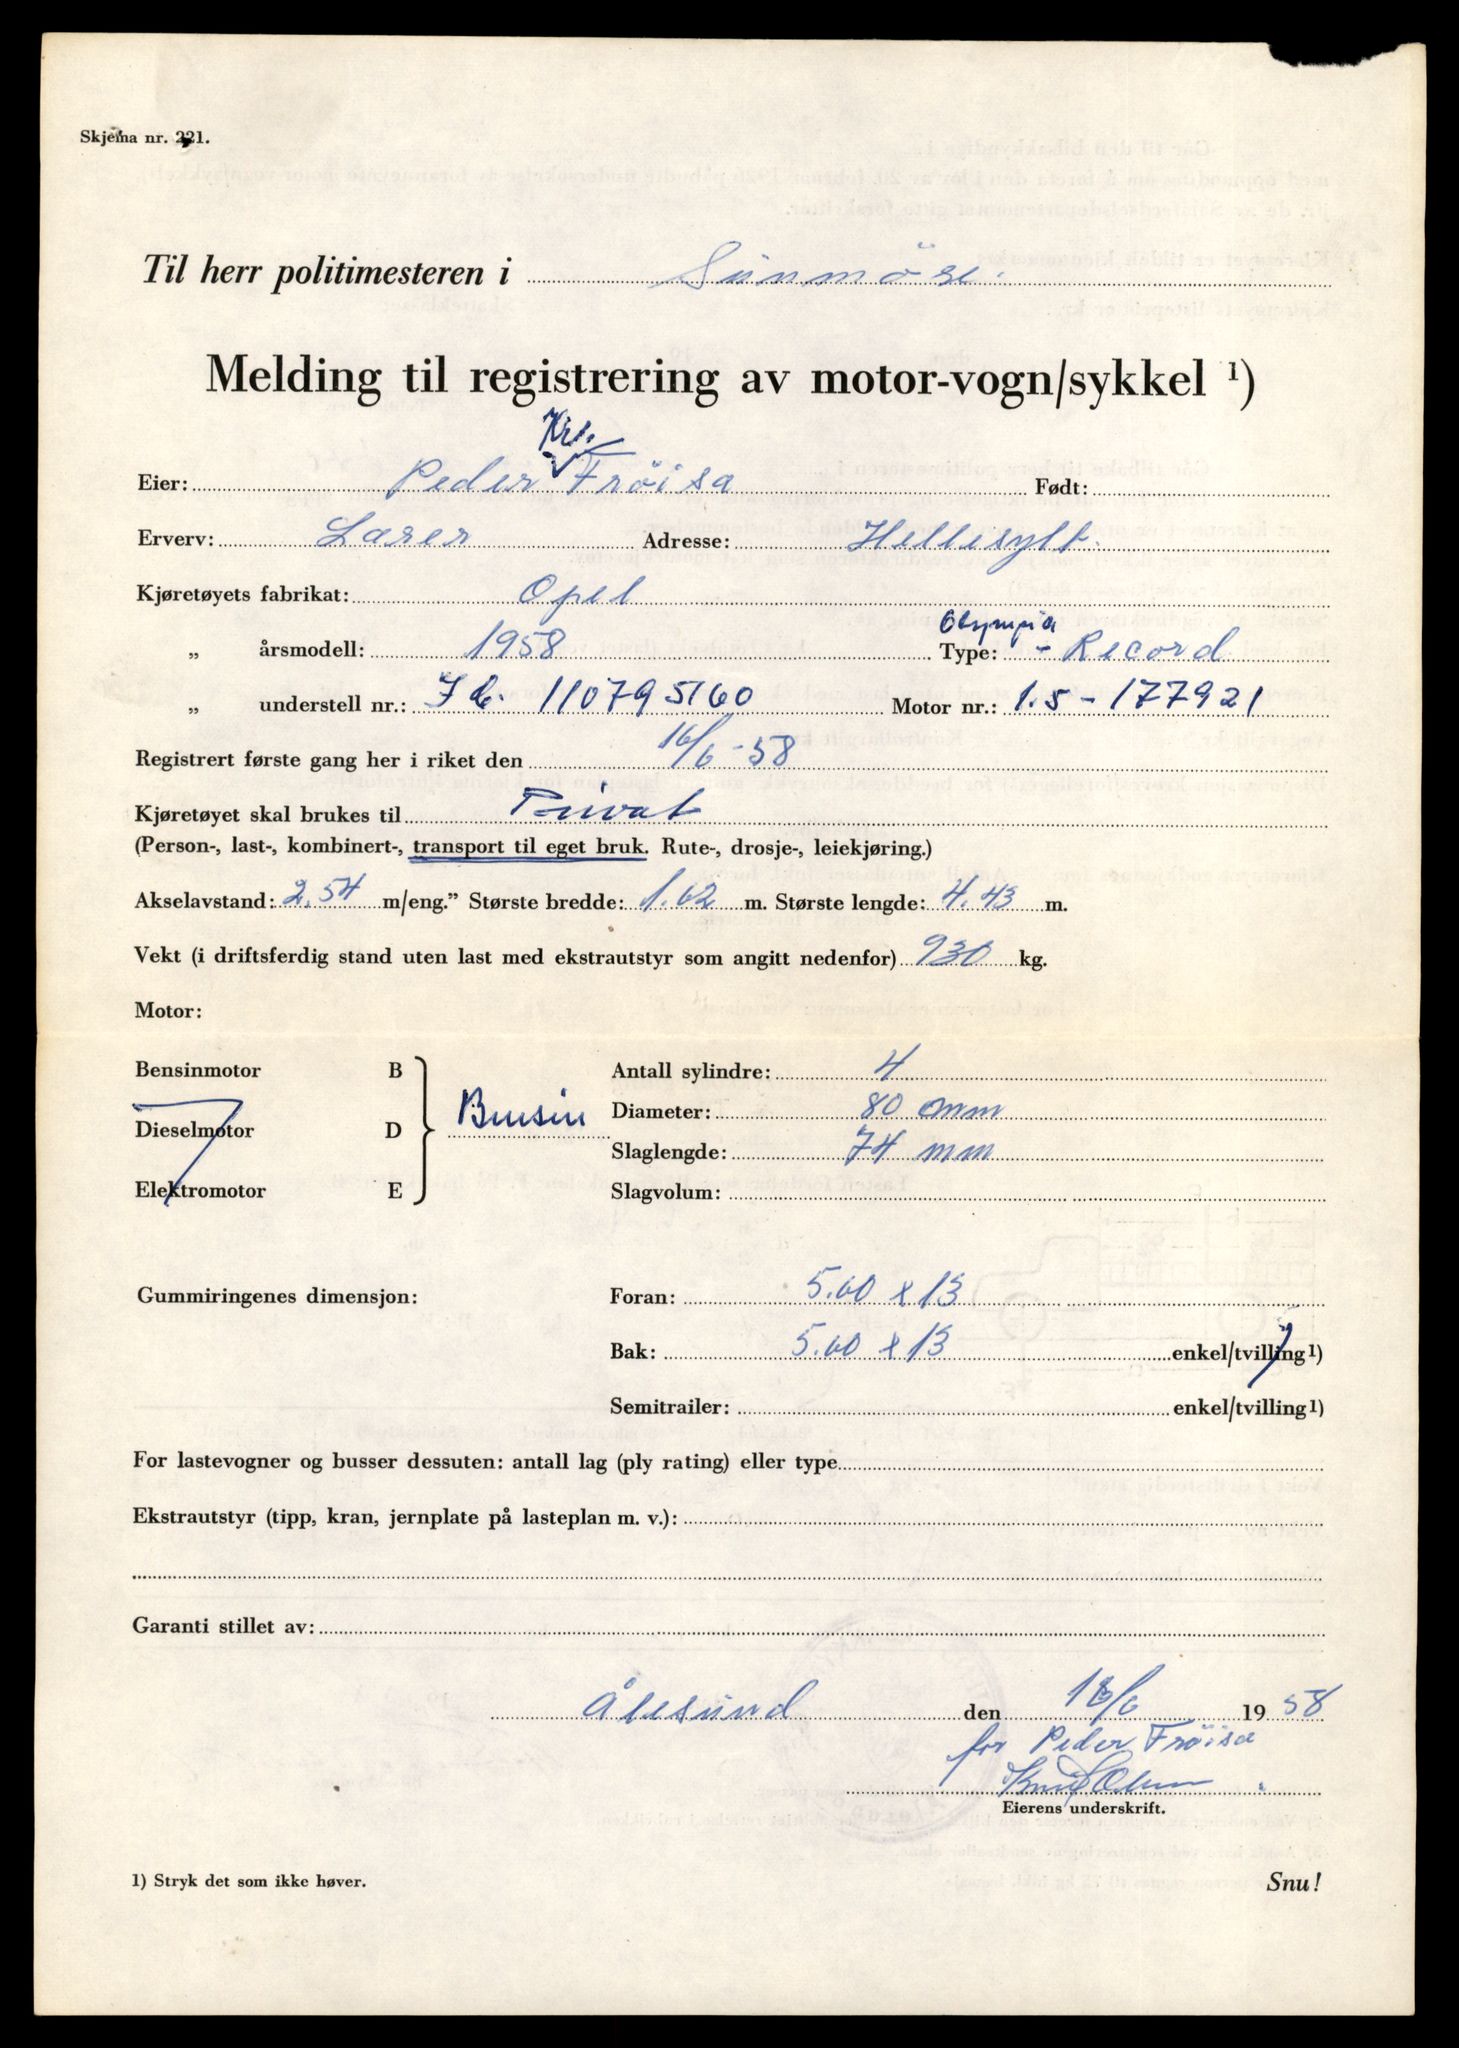 Skjema nr. 221.
Til herr politimesteren i Sunmöre.
Melding til registrering av motor-vogn/sykkel 1)
Krs.
Eier: Peder Fröisa Født:
Erverv: Lærer Adresse: Hellesylt.
Kjøretøyets fabrikat: Opel
Olympia
„ årsmodell: 1958 Type: - Record
„ understell nr.: 110795160 Motor nr.: 1.5 - 177921
Registrert første gang her i riket den 16/6 - 58
Kjøretøyet skal brukes til Privat
(Person-, last-, kombinert-, transport til eget bruk. Rute-, drosje-, leiekjøring.)
Akselavstand: 2.54 m/eng.” Største bredde: 1.62 m. Største lengde: 4.43 m.
Vekt (i driftsferdig stand uten last med ekstrautstyr som angitt nedenfor) 930 kg.
Motor:
Bensinmotor B Antall sylindre: 4
Bensin Diameter: 80 mm
Dieselmotor D Slaglengde: 74 mm
Elektromotor E Slagvolum:
Gummiringenes dimensjon: Foran: 5.60 x 13
Bak: 5.60 x 13 enkel/tvilling 1)
Semitrailer: enkel/tvilling 1)
For lastevogner og busser dessuten: antall lag (ply rating) eller type
Ekstrautstyr (tipp, kran, jernplate på lasteplan m. v.):
Garanti stillet av:
Ålesund den 16/6 1958
for Peder Fröisa
Eierens underskrift.
1) Stryk det som ikke høver. Snu!